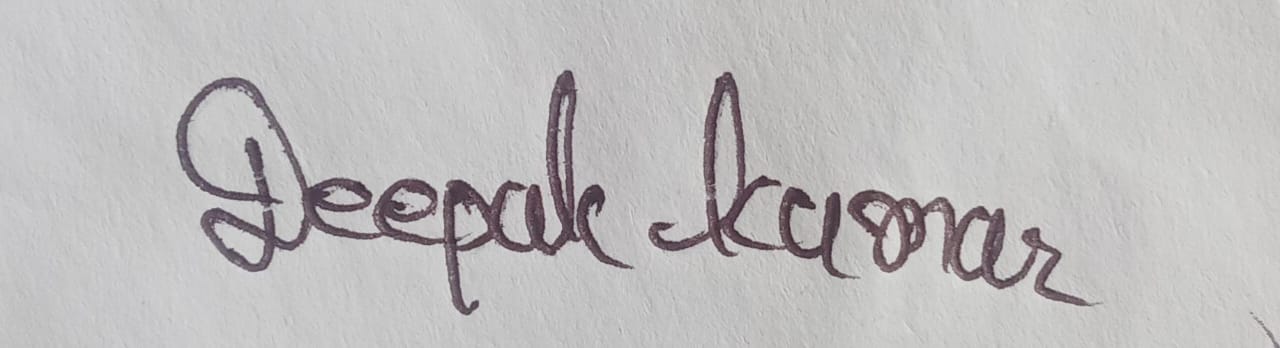 Deepak kumar